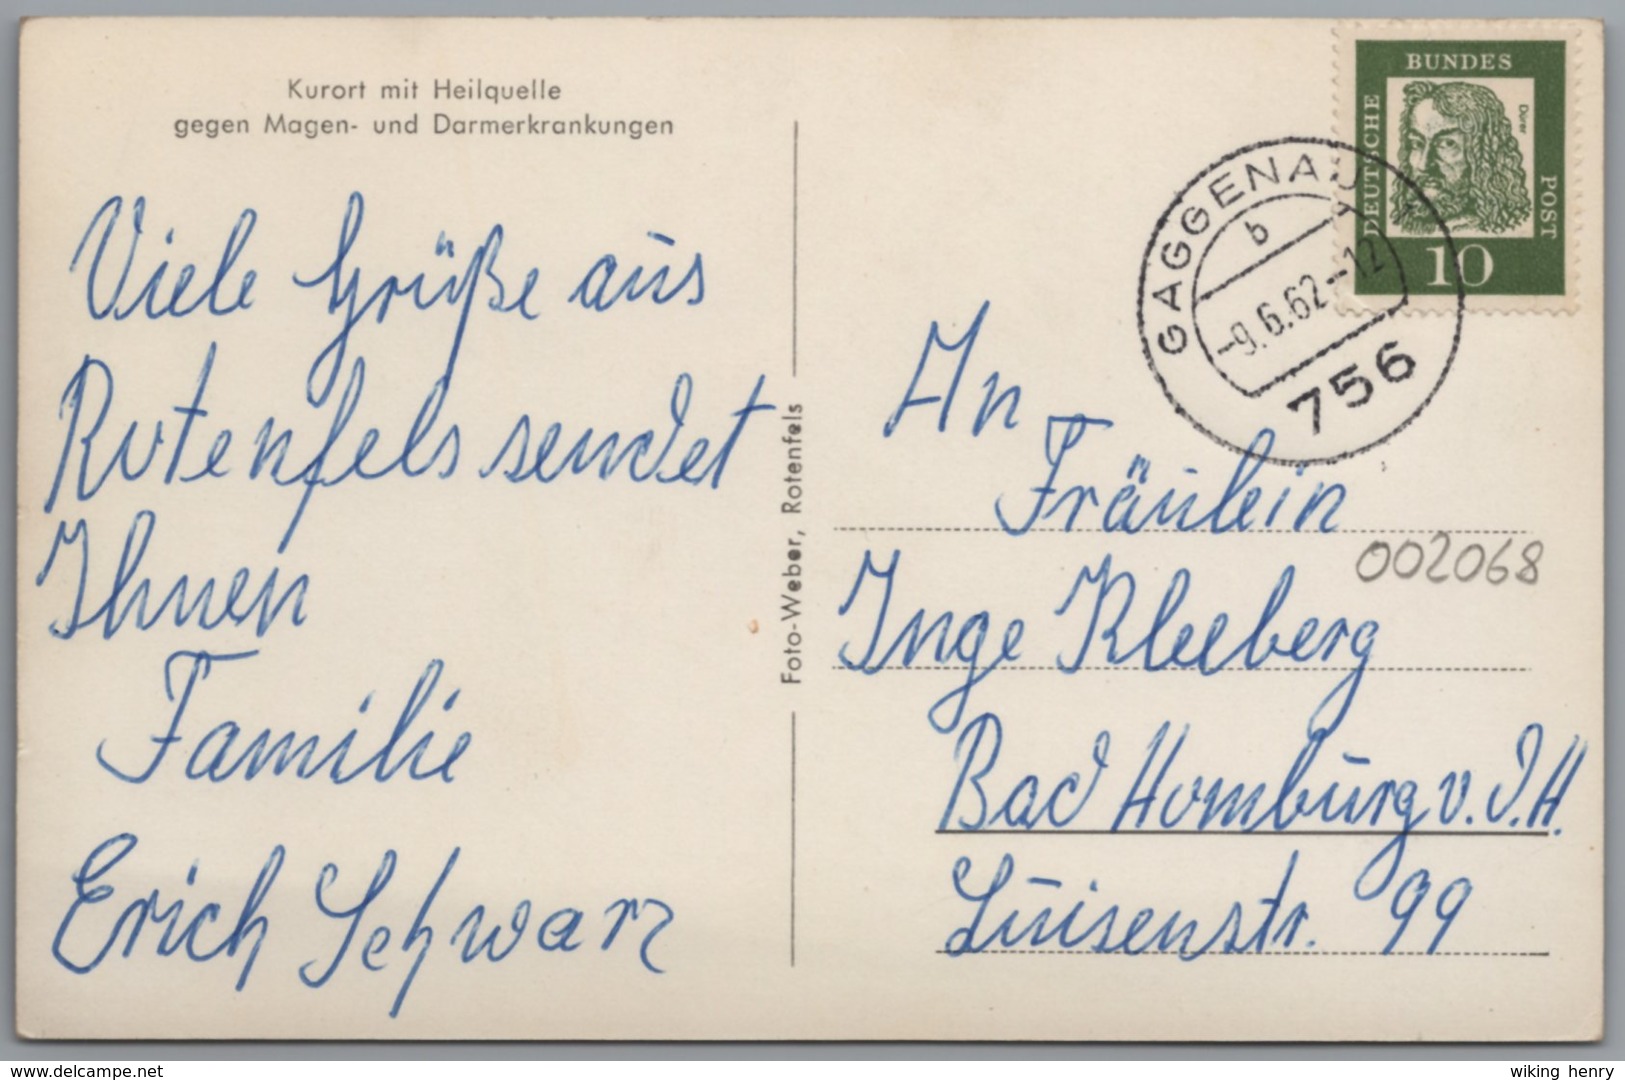 Kurort mit Heilquelle
gegen Magen- und Darmerkrankungen
Viele Grüße aus
Rotenfels sendet
Ihnen
Familie
Erich Schwarz
Foto-Weber, Rotenfels
DEUTSCHE
BUNDES
POST
Dürer
10
GAGGENAU 1
b
-9.6.62-12
756
An
Fräulein
002068
Inge Kleeberg
Bad Homburg v.d.H.
Luisenstr. 99
www.delcampe.net
wiking henry